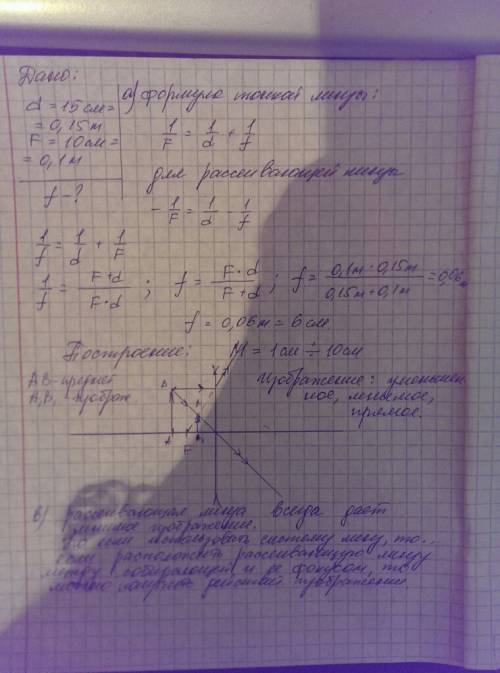 Дано:
d = 15 см =
= 0,15 м
F = 10 см =
= 0,1 м
f - ?
а) формула тонкой линзы:
1/F = 1/d + 1/f
для рассеивающей линзы
- 1/F = 1/d - 1/f
1/f = 1/d + 1/F
1/f = F+d / F·d ; f = F·d / F+d ; f = 0,1м · 0,15м / 0,15м + 0,1м = 0,06м
f = 0,06 м = 6 см
Построение: М = 1 см ÷ 10 см
АВ - предмет
А₁В₁ - изображ.
Изображение: уменьшен
ное, мнимое,
прямое.
в) рассеивающая линза всегда дает
мнимое изображение.
если использовать систему линз, то..
если расположить рассеивающую линзу
между собирающей и ее фокусом, то
можно получить изображение.